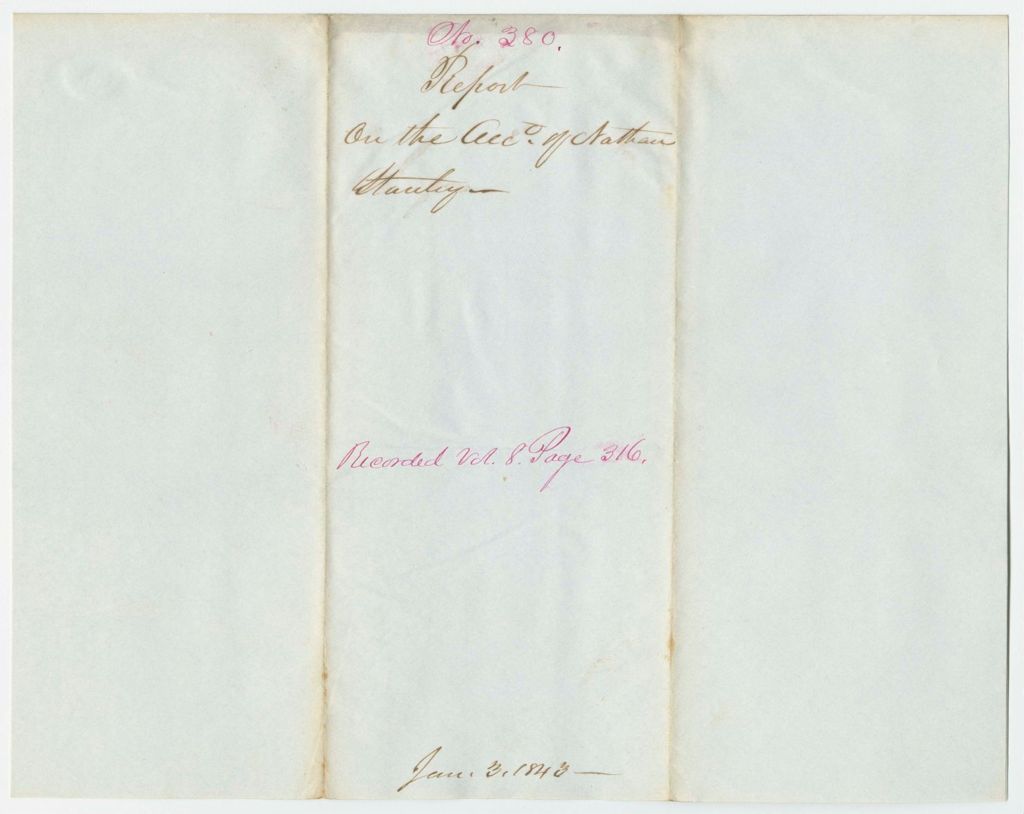 No. 380.
Report
On the Acct. of Nathan
Stanley—
Recorded Vol. 8. Page 316.
Jan. 3. 1843—